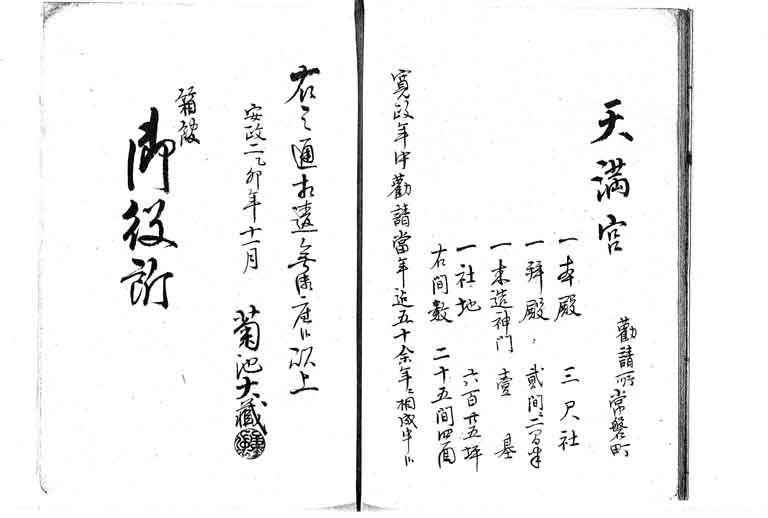 天満宮
勸請所常磐町
一本殿 三尺社
一拜殿 貳間ニ三間半
一木造神門 壹墓
一社地 六百廿五坪
右間數 二十五間四面
寛政年中勸請當年迄五十余年ニ相成申候
右之通相違無御座候以上
安政二乙卯年十一月
菊池大藏
箱舘
御役所